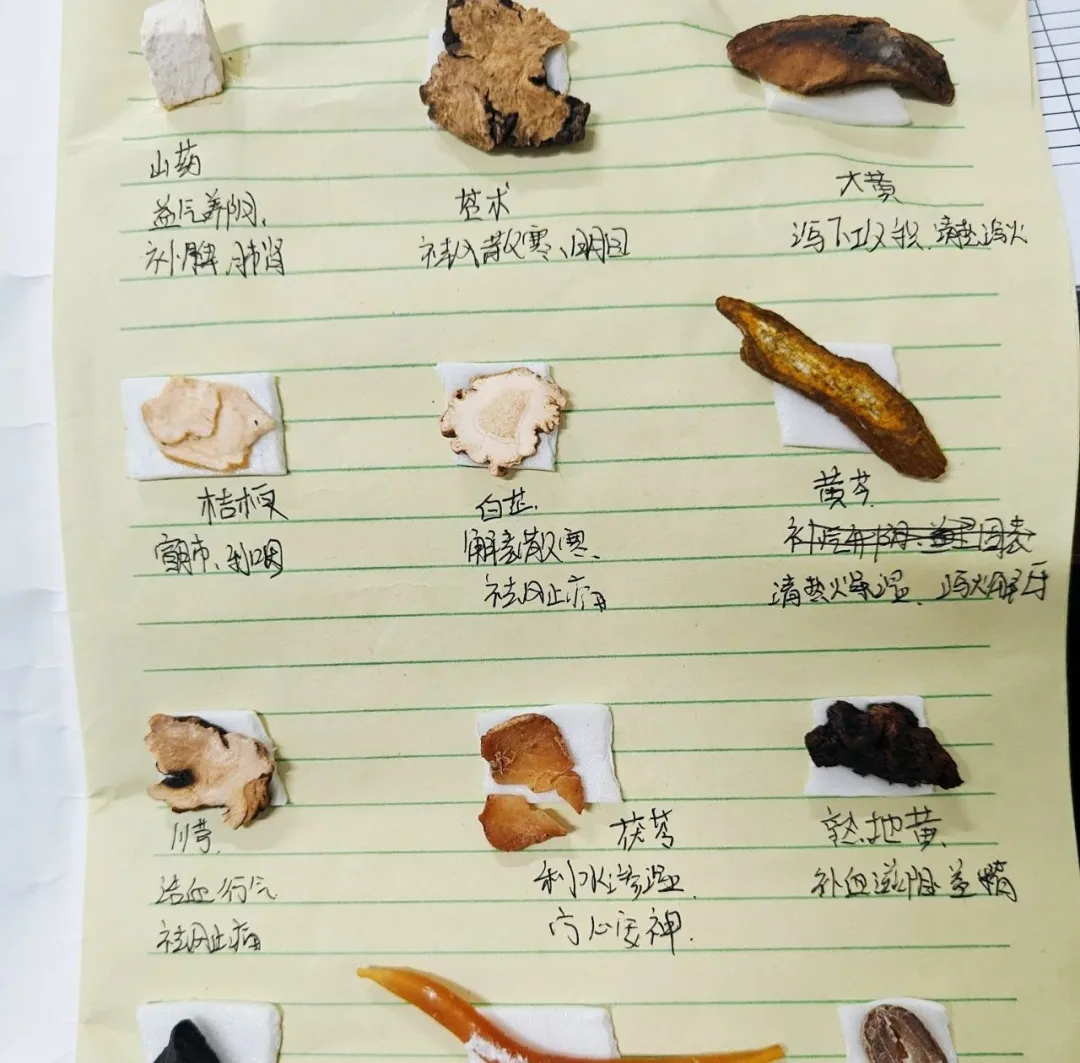 山药
益气养阴、
补脾肺肾
苍术
祛风散寒、明目
大黄
泻下攻积、清热泻火
桔梗
宣肺、利咽
白芷
解表散寒、
祛风止痛
黄芩
清热燥湿、泻火解毒
川芎
活血行气
祛风止痛
茯苓
利水渗湿、
宁心安神
熟地黄
补血滋阴 益精